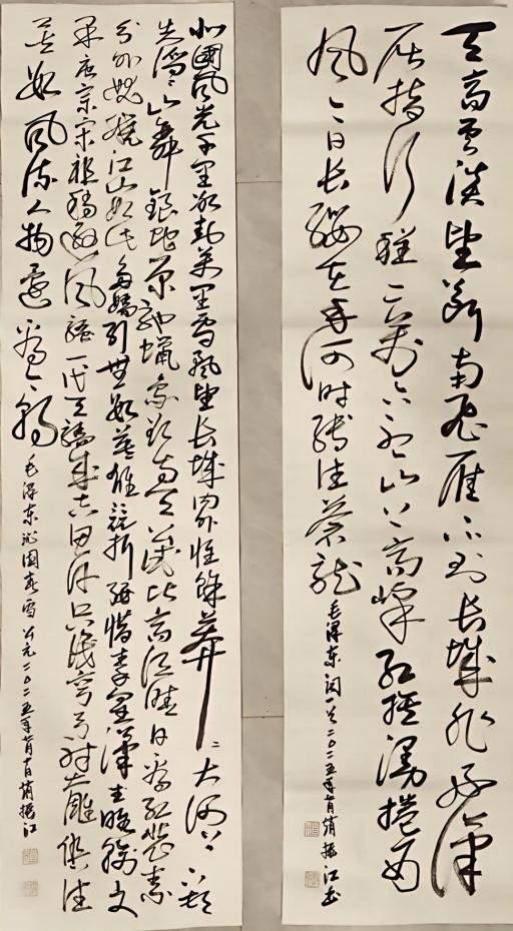 天高云淡望断南飞雁不到长城非好汉
屈指行程二万六盘山上高峰红旗漫卷西
风今日长缨在手何时缚住苍龙
毛泽东词一首二〇二五年 月肖振江书
北國风光千里冰封万里雪飘望长城内外惟余莽莽大河上下顿
失滔滔山舞银蛇原驰蜡象欲与天公试比高须晴日看红装素
分外妖娆江山如此多娇引無数英雄竞折腰惜秦皇汉武略输文
采唐宗宋祖稍逊风骚一代天骄成吉思汗只识弯弓射大雕俱往
矣数风流人物还看今朝
毛泽东沁园春雪公元二〇二五年 月十日肖振江